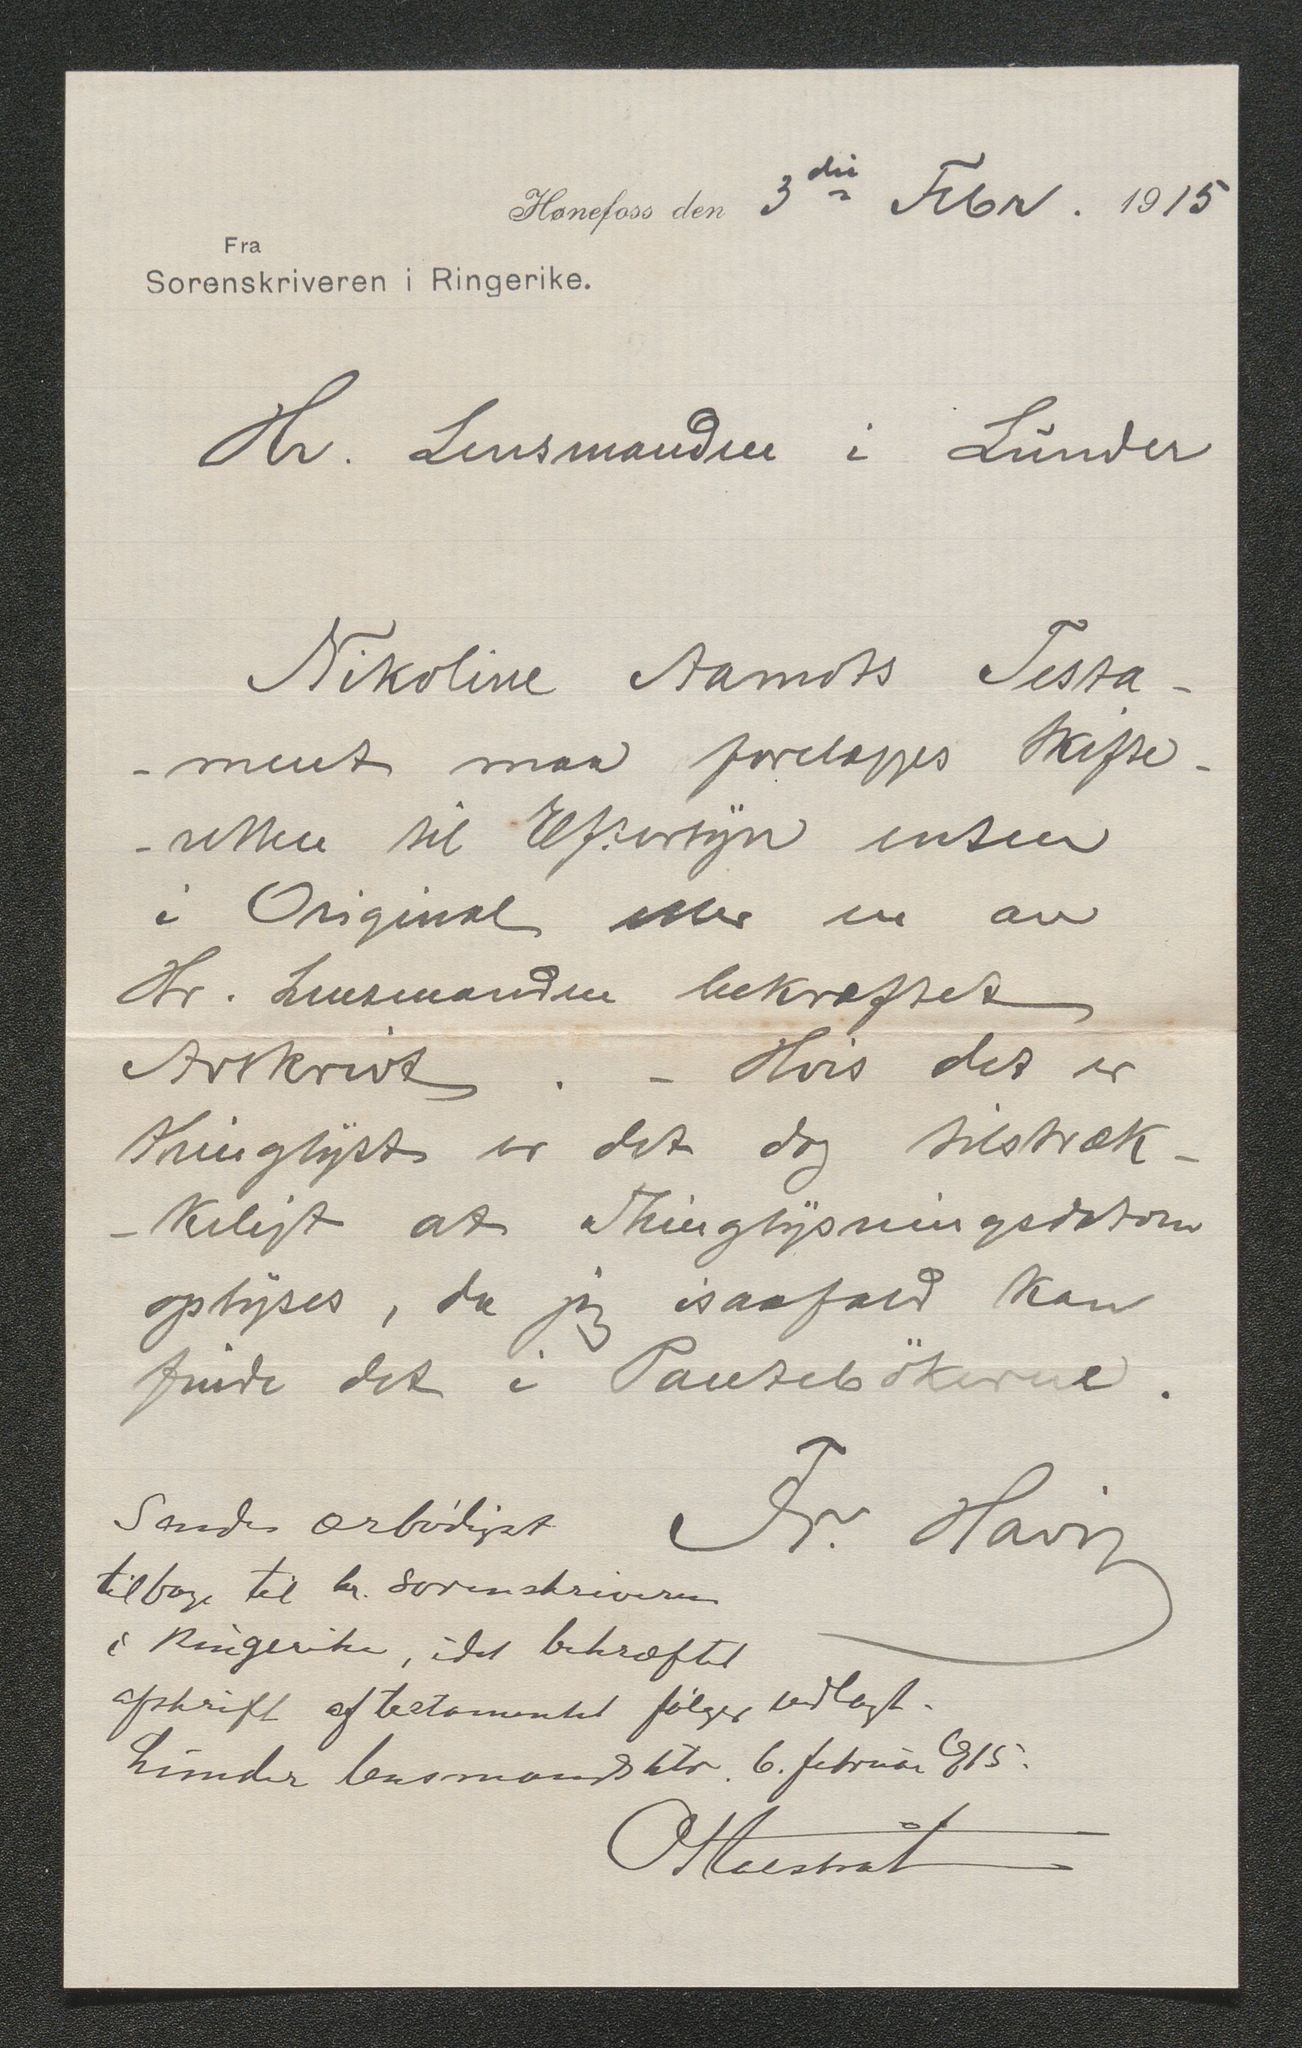 Hønefoss den 3die Febr. 1915
Fra
Sorenskriveren i Ringerike.
Hr. Lensmanden i Lunder
Nikoline Aamots Testa-
-ment maa forelægges Skifte-
-retten til Eftersyn enten
i Original eller en av
Hr. Lensmanden bekræftet
Avskrivt. - Hvis det er
thinglyst er det dog tilstræk-
-keligt at Thinglysningsdatoen
oplyses, da jeg isaafald kan
finde det i Pantebökerne.
Fr.
Sendes ærbødigst
tilbage til hr. sorenskriveren
i Ringerike, idet bekræftet
afskrift af testamentet følger vedlagt.
Lunder lensmandsktr. 6. februar 1915.